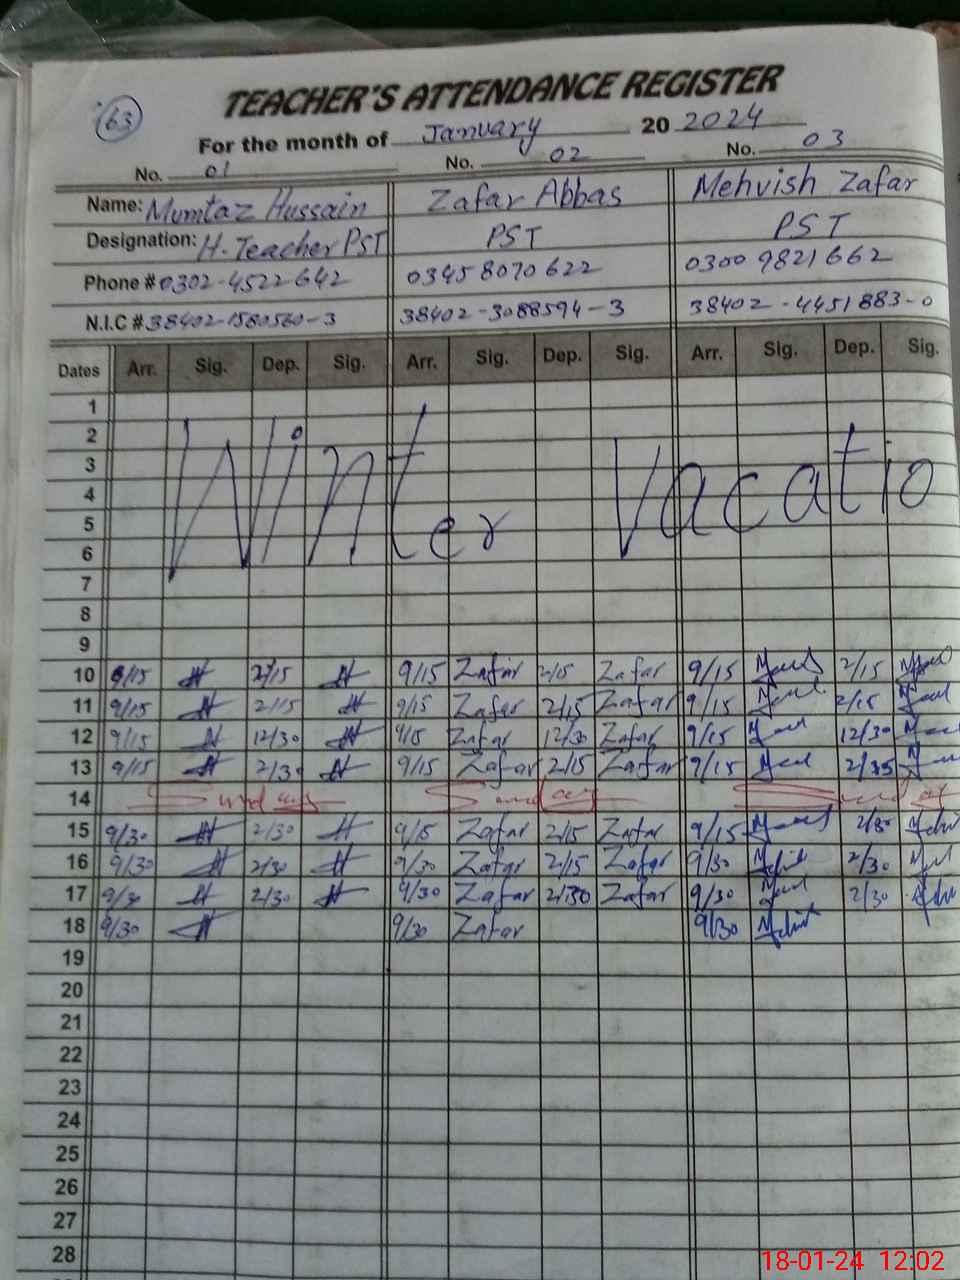 63
TEACHER'S ATTENDANCE REGISTER
For the month of January 20 2024
No. 01 No. 02 No. 03
Name: Mumtaz Hussain Zafar Abbas Mehvish Zafar
Designation: H. Teacher PST PST PST
Phone # 0302-4522642 03458070622 03009821662
N.I.C # 38402-1580560-3 38402-3088594-3 38402-4451883-0
Dates Arr. Sig. Dep. Sig. Arr. Sig. Dep. Sig. Arr. Sig. Dep. Sig.
1
2
3
4
5
6
Winter Vacatio
7
8
9
10 9/15 2/15 9/15 Zafar 2/15 Zafar 9/15 2/15
11 9/15 2/15 9/15 Zafar 2/15 Zafar 9/15 2/15
12 9/15 12/30 9/15 Zafar 12/30 Zafar 9/15 12/30
13 9/15 2/30 9/15 Zafar 2/15 Zafar 9/15
14 Sunday Sunday Sunday
15 9/30 2/30 9/15 Zafar 2/15 Zafar 9/15 2/30
16 9/30 2/30 9/30 Zafar 2/15 Zafar 9/30 2/30
17 9/30 2/30 9/30 Zafar 2/30 Zafar 9/30 2/30
18 9/30 9/30 Zafar 9/30
19
20
21
22
23
24
25
26
27
28
18-01-24 12:02